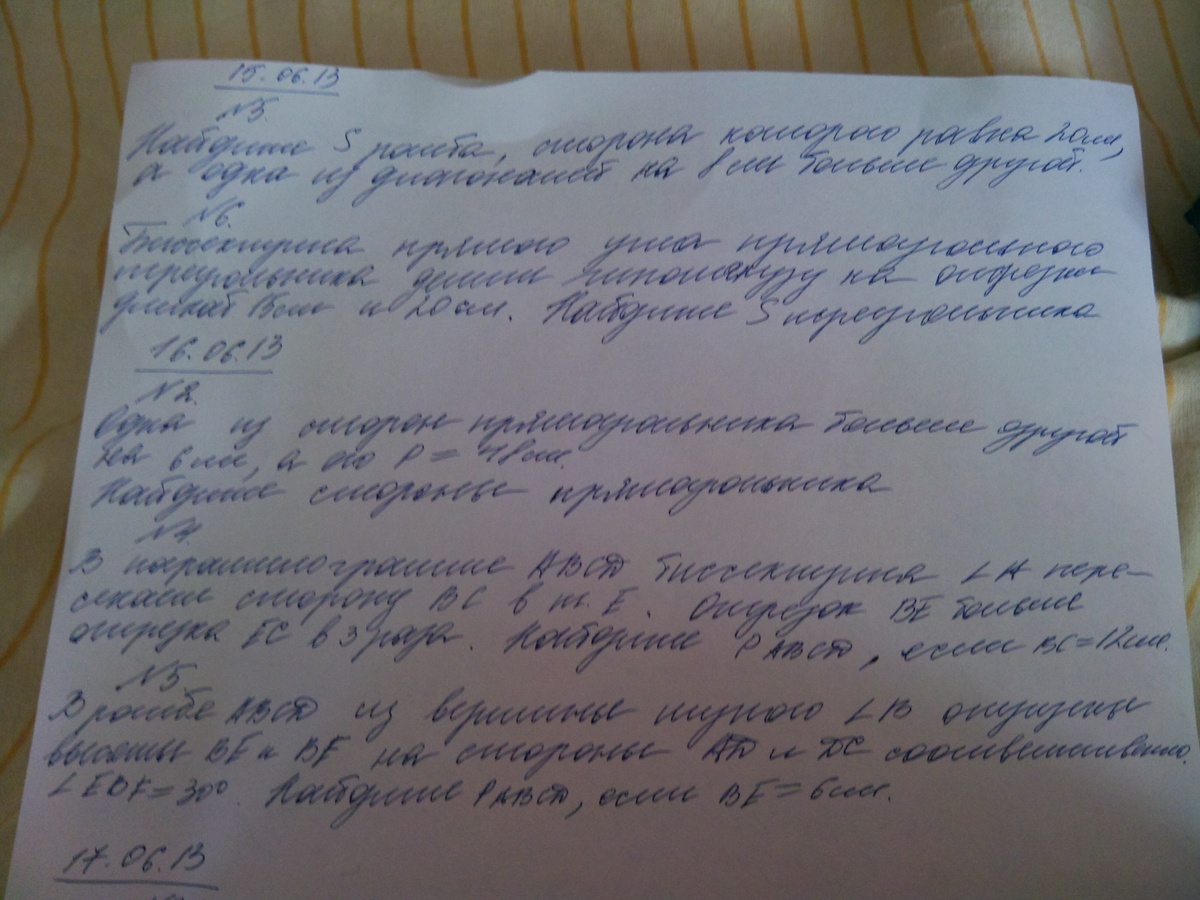 15.06.13
№5.
Найдите S ромба, сторона которого равна 20см,
а одна из диагоналей на 8см больше другой.
№6.
Биссектриса прямого угла прямоугольного
треугольника делит гипотенузу на отрезки
длиной 15см и 20см. Найдите S треугольника
16.06.13
№2.
Одна из сторон прямоугольника больше другой
на 6см, а его P = 48см.
Найдите стороны прямоугольника
№4.
В параллелограмме ABCD биссектриса ∠A пере-
секает сторону BC в т. E. Отрезок BE больше
отрезка EC в 3 раза. Найдите P ABCD, если BC=12см.
№5.
В ромбе ABCD из вершины тупого ∠B опущены
высоты BE и BF на стороны AD и DC соответственно.
∠EBF=30°. Найдите P ABCD, если BE=6см.
17.06.13